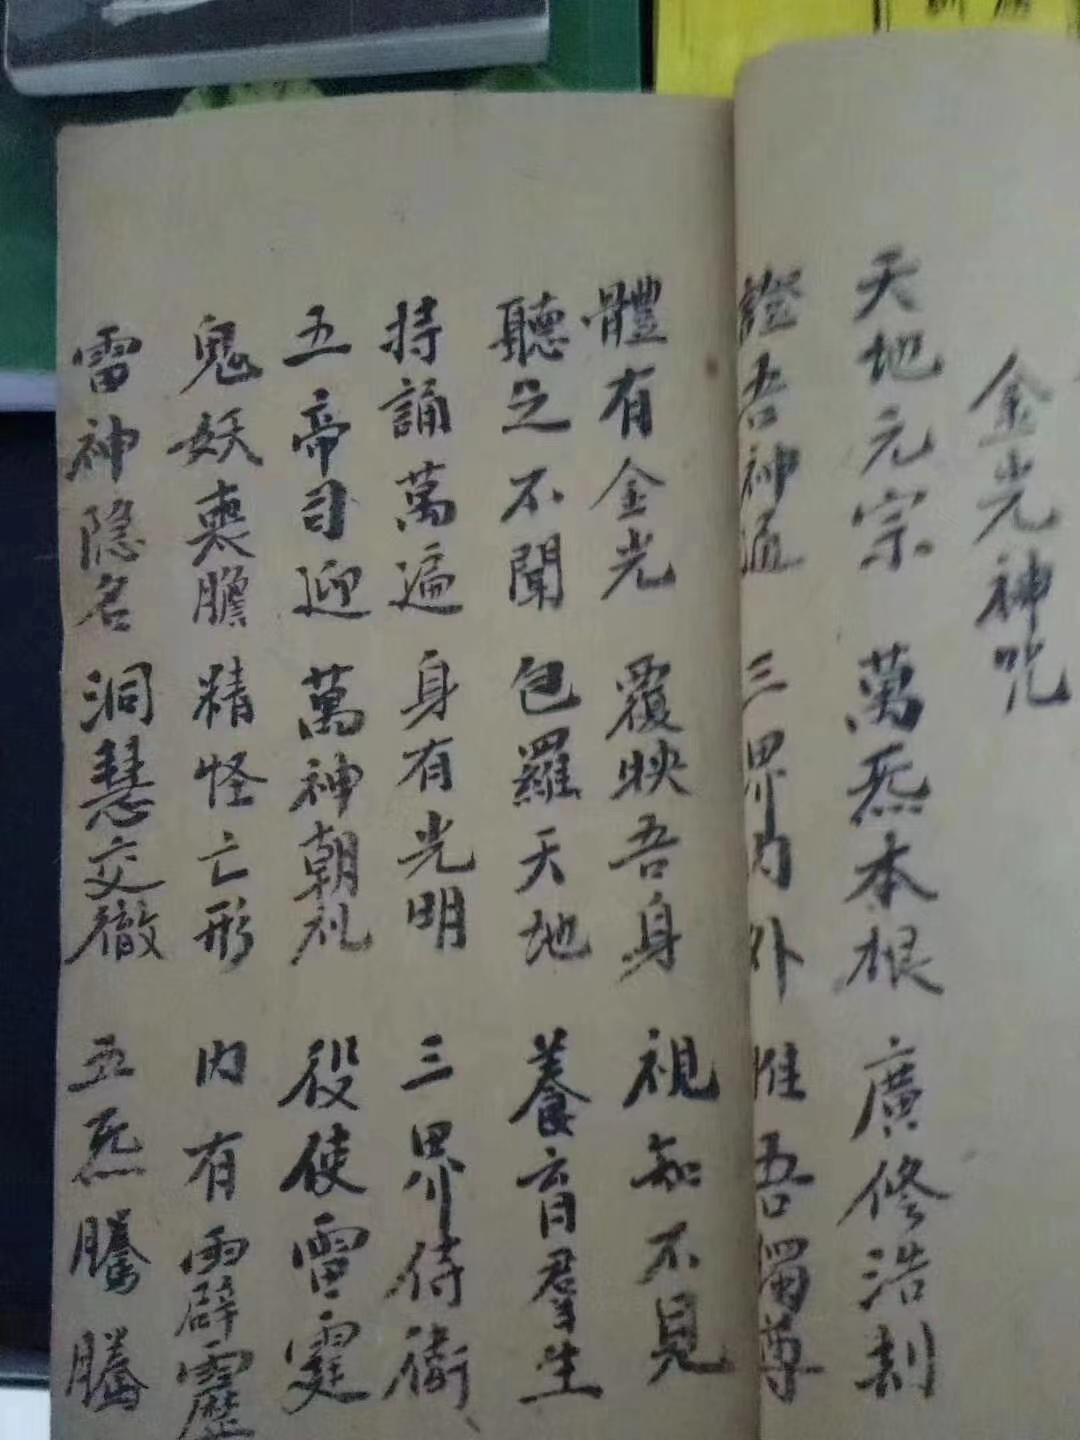 金光神咒
天地元宗 萬炁本根 廣修浩刼
證吾神通 三界内外 惟吾獨尊
體有金光 覆映吾身 視知不見
聽之不聞 包羅天地 養育羣生
持誦萬遍 身有光明 三界侍衛
五帝司迎 萬神朝礼 役使雷霆
鬼妖喪膽 精怪亡形 内有霹靂
雷神隐名 洞慧交徹 五炁騰騰